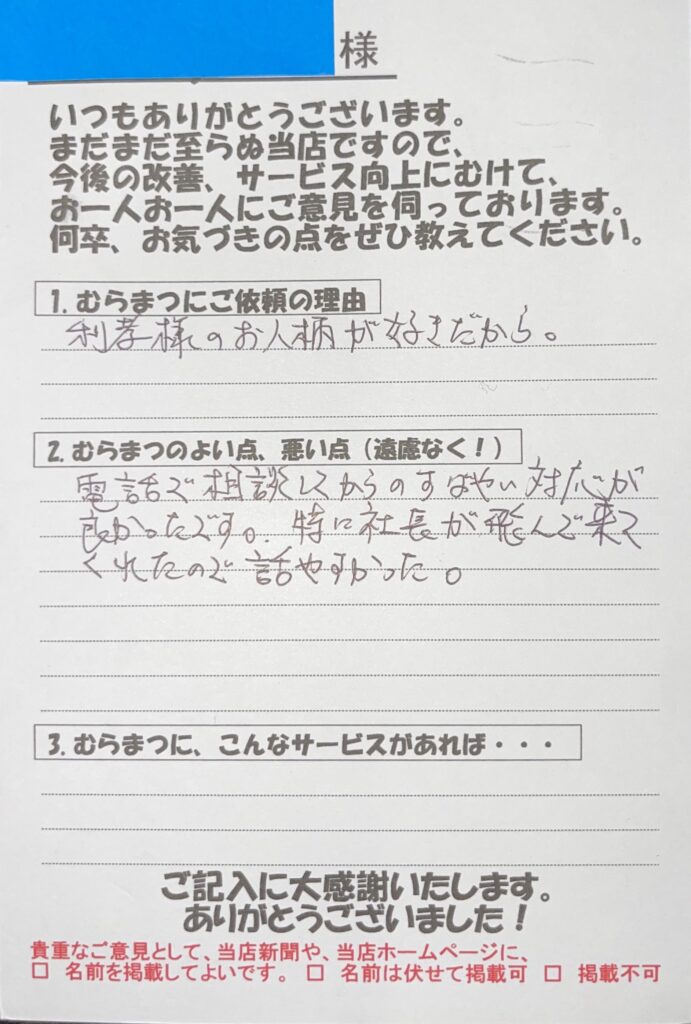 様
いつもありがとうございます。
まだまだ至らぬ当店ですので、
今後の改善、サービス向上にむけて、
お一人お一人にご意見を伺っております。
何卒、お気づきの点をぜひ教えてください。
1. むらまつにご依頼の理由
利孝様のお人柄が好きだから。
2. むらまつのよい点、悪い点（遠慮なく！）
電話で相談してからのすばやい対応が
良かったです。特に社長が飛んで来て
くれたので話やすかった。
3. むらまつに、こんなサービスがあれば・・・
ご記入に大感謝いたします。
ありがとうございました！
貴重なご意見として、当店新聞や、当店ホームページに、
□ 名前を掲載してよいです。 □ 名前は伏せて掲載可 □ 掲載不可